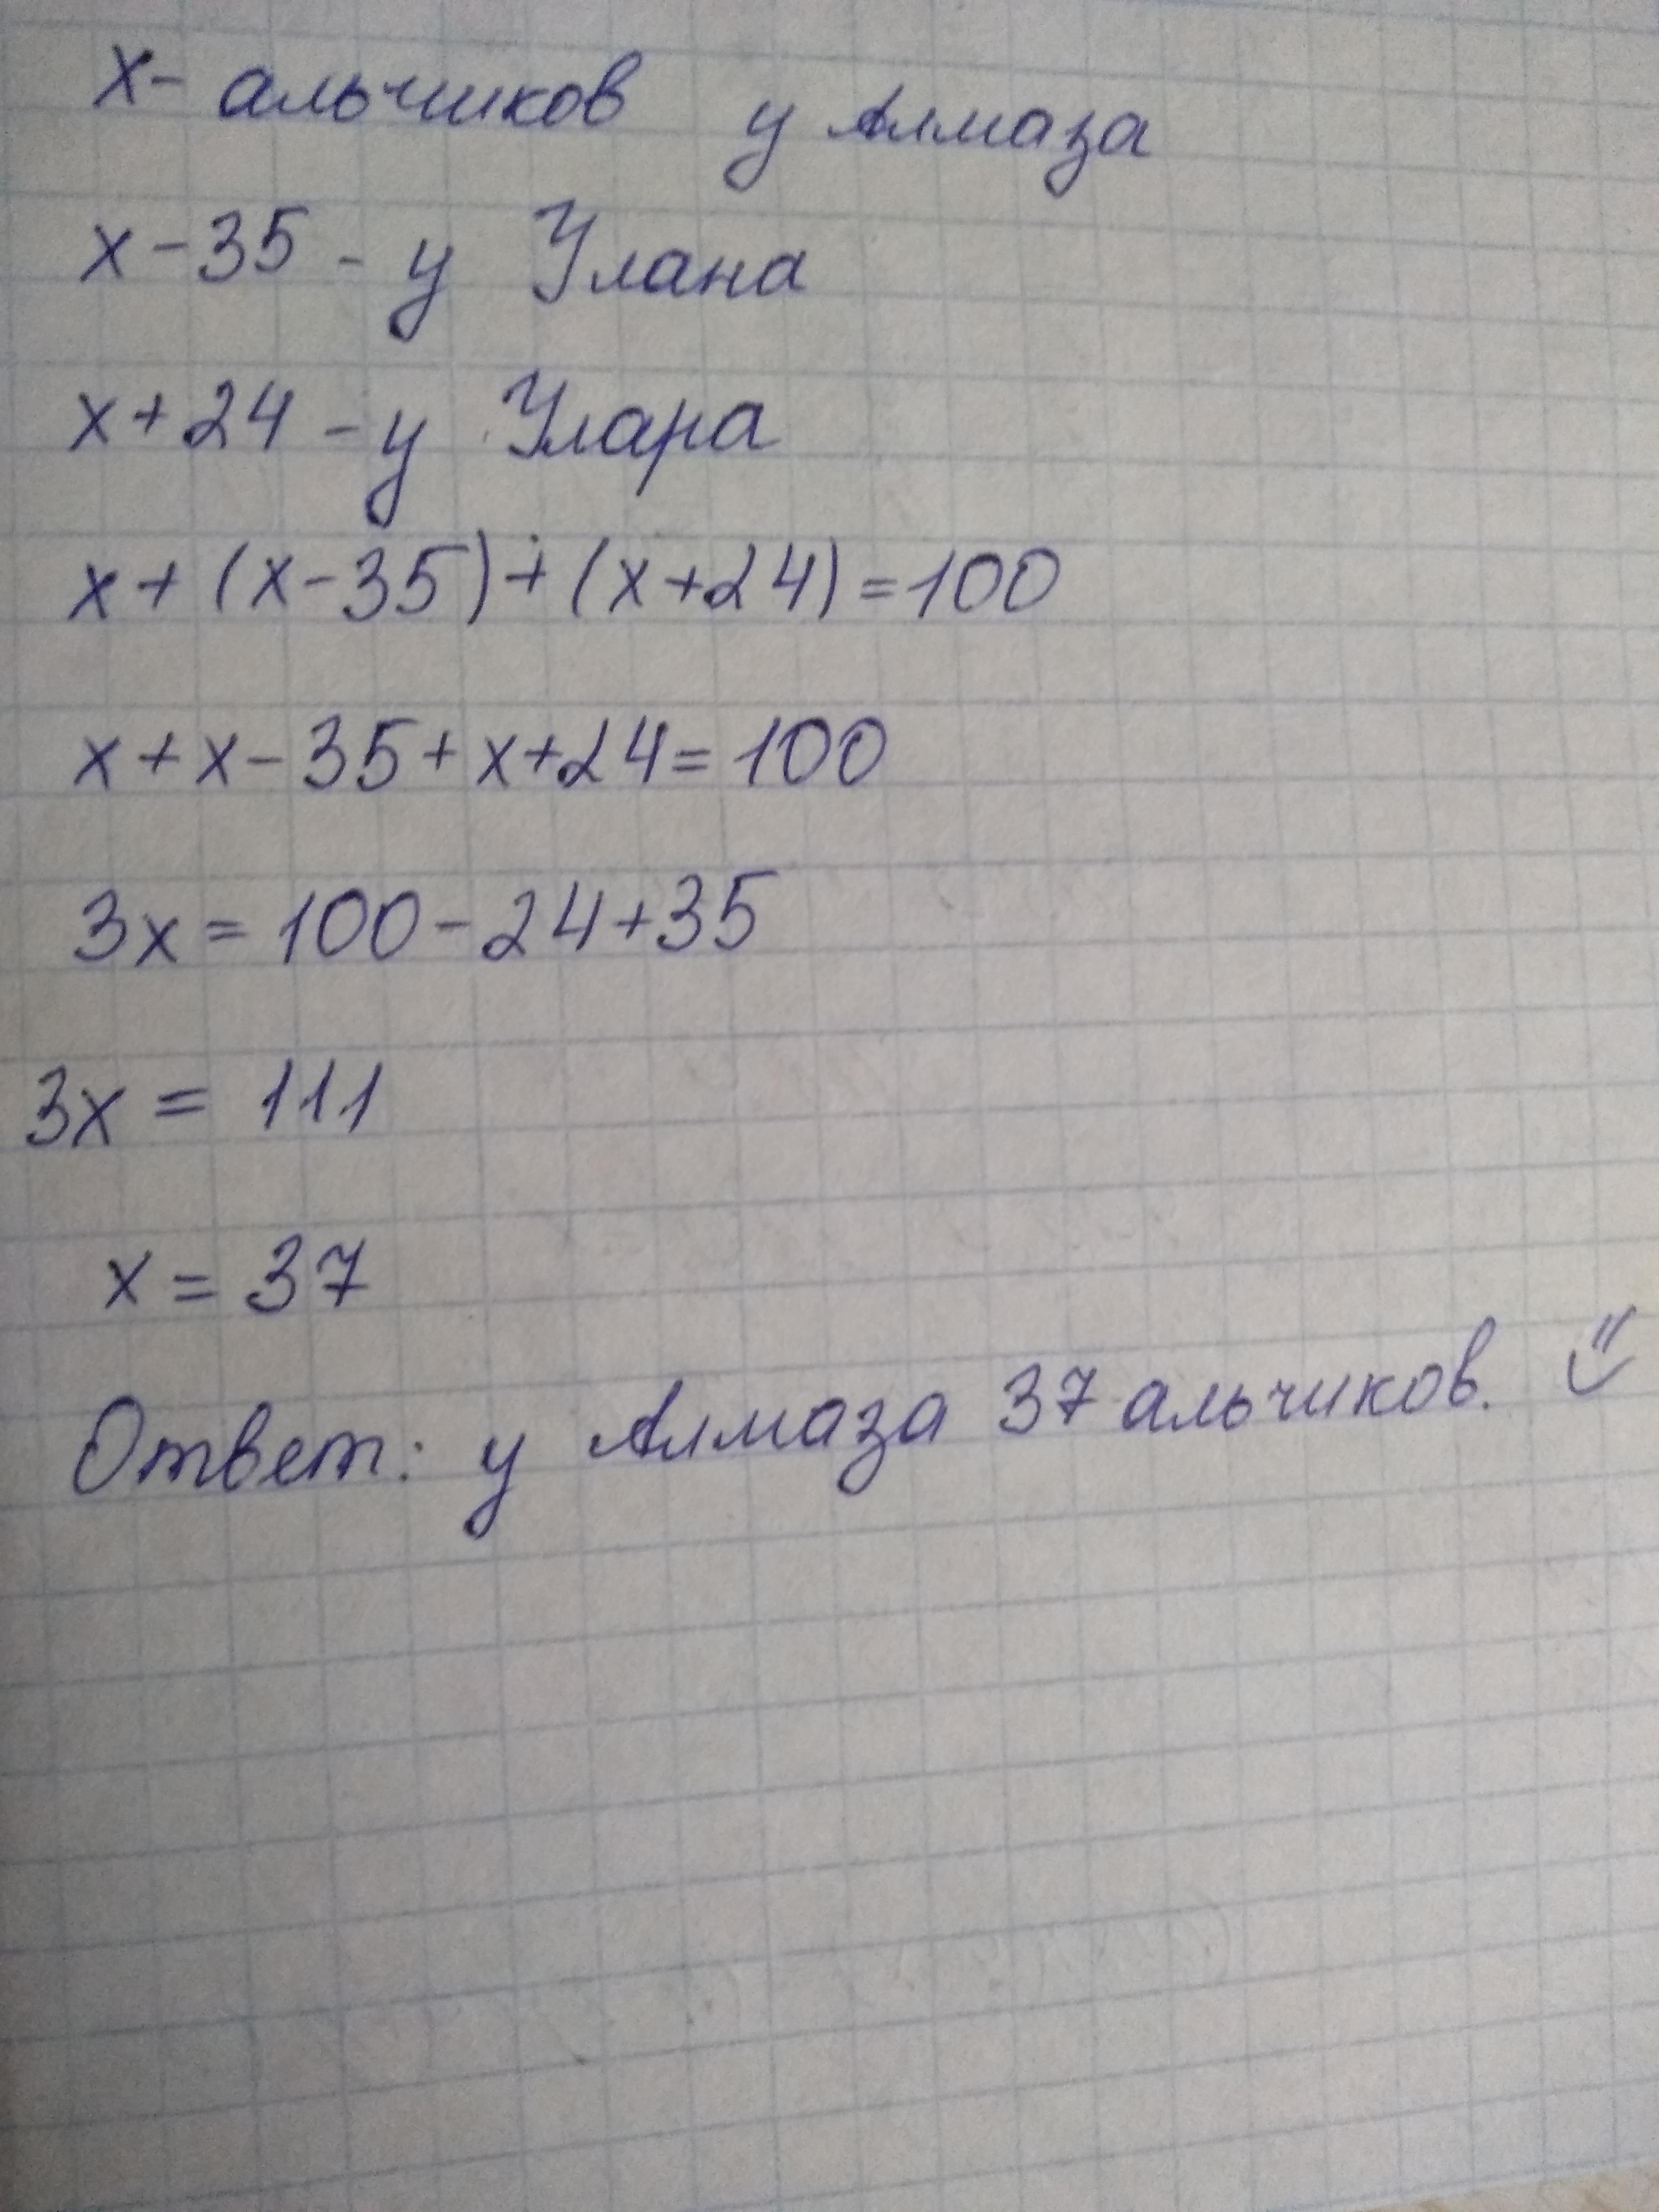 x- альчиков у Алмаза
x-35 - у Улана
x+24 - у Улара
x+(x-35)+(x+24)=100
x+x-35+x+24=100
3x=100-24+35
3x = 111
x = 37
Ответ: у Алмаза 37 альчиков.